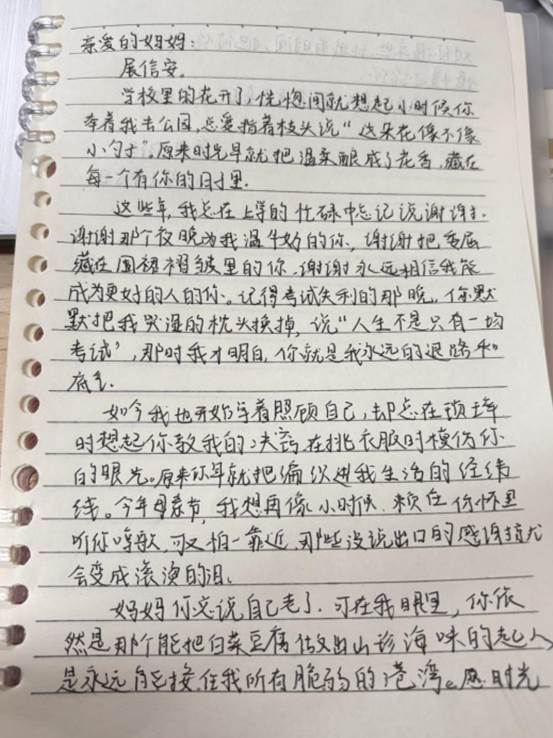 亲爱的妈妈：
展信安。
学校里的花开了，恍惚间就想起小时候你
牵着我去公园，总爱指着枝头说“这朵花像不像
小勺子”。原来时光早就把温柔酿成了花香，藏在
每一个有你的日子里。
这些年，我总在上学的忙碌中忘记说谢谢：
谢谢那个夜晚为我温牛奶的你，谢谢把委屈
藏在围裙褶皱里的你，谢谢永远相信我能
成为更好的人的你。记得考试失利的那晚，你默
默把我哭湿的枕头换掉，说“人生不是只有一场
考试”，那时我才明白，你就是我永远的退路和
底气。
如今我也开始学着照顾自己，却总在锁车
时想起你教我的决窍，在挑衣服时模仿你
的眼光。原来你早就把编织进我生活的经纬
线。今年母亲节，我想再像小时候，赖在你怀里
听你哼歌，可又怕一靠近，那些没说出口的感谢
会变成滚烫的泪。
妈妈你总说自己老了，可在我眼里，你依
然是那个能把白菜豆腐做出山珍海味的超人
是永远能接住我所有脆弱的港湾。愿时光